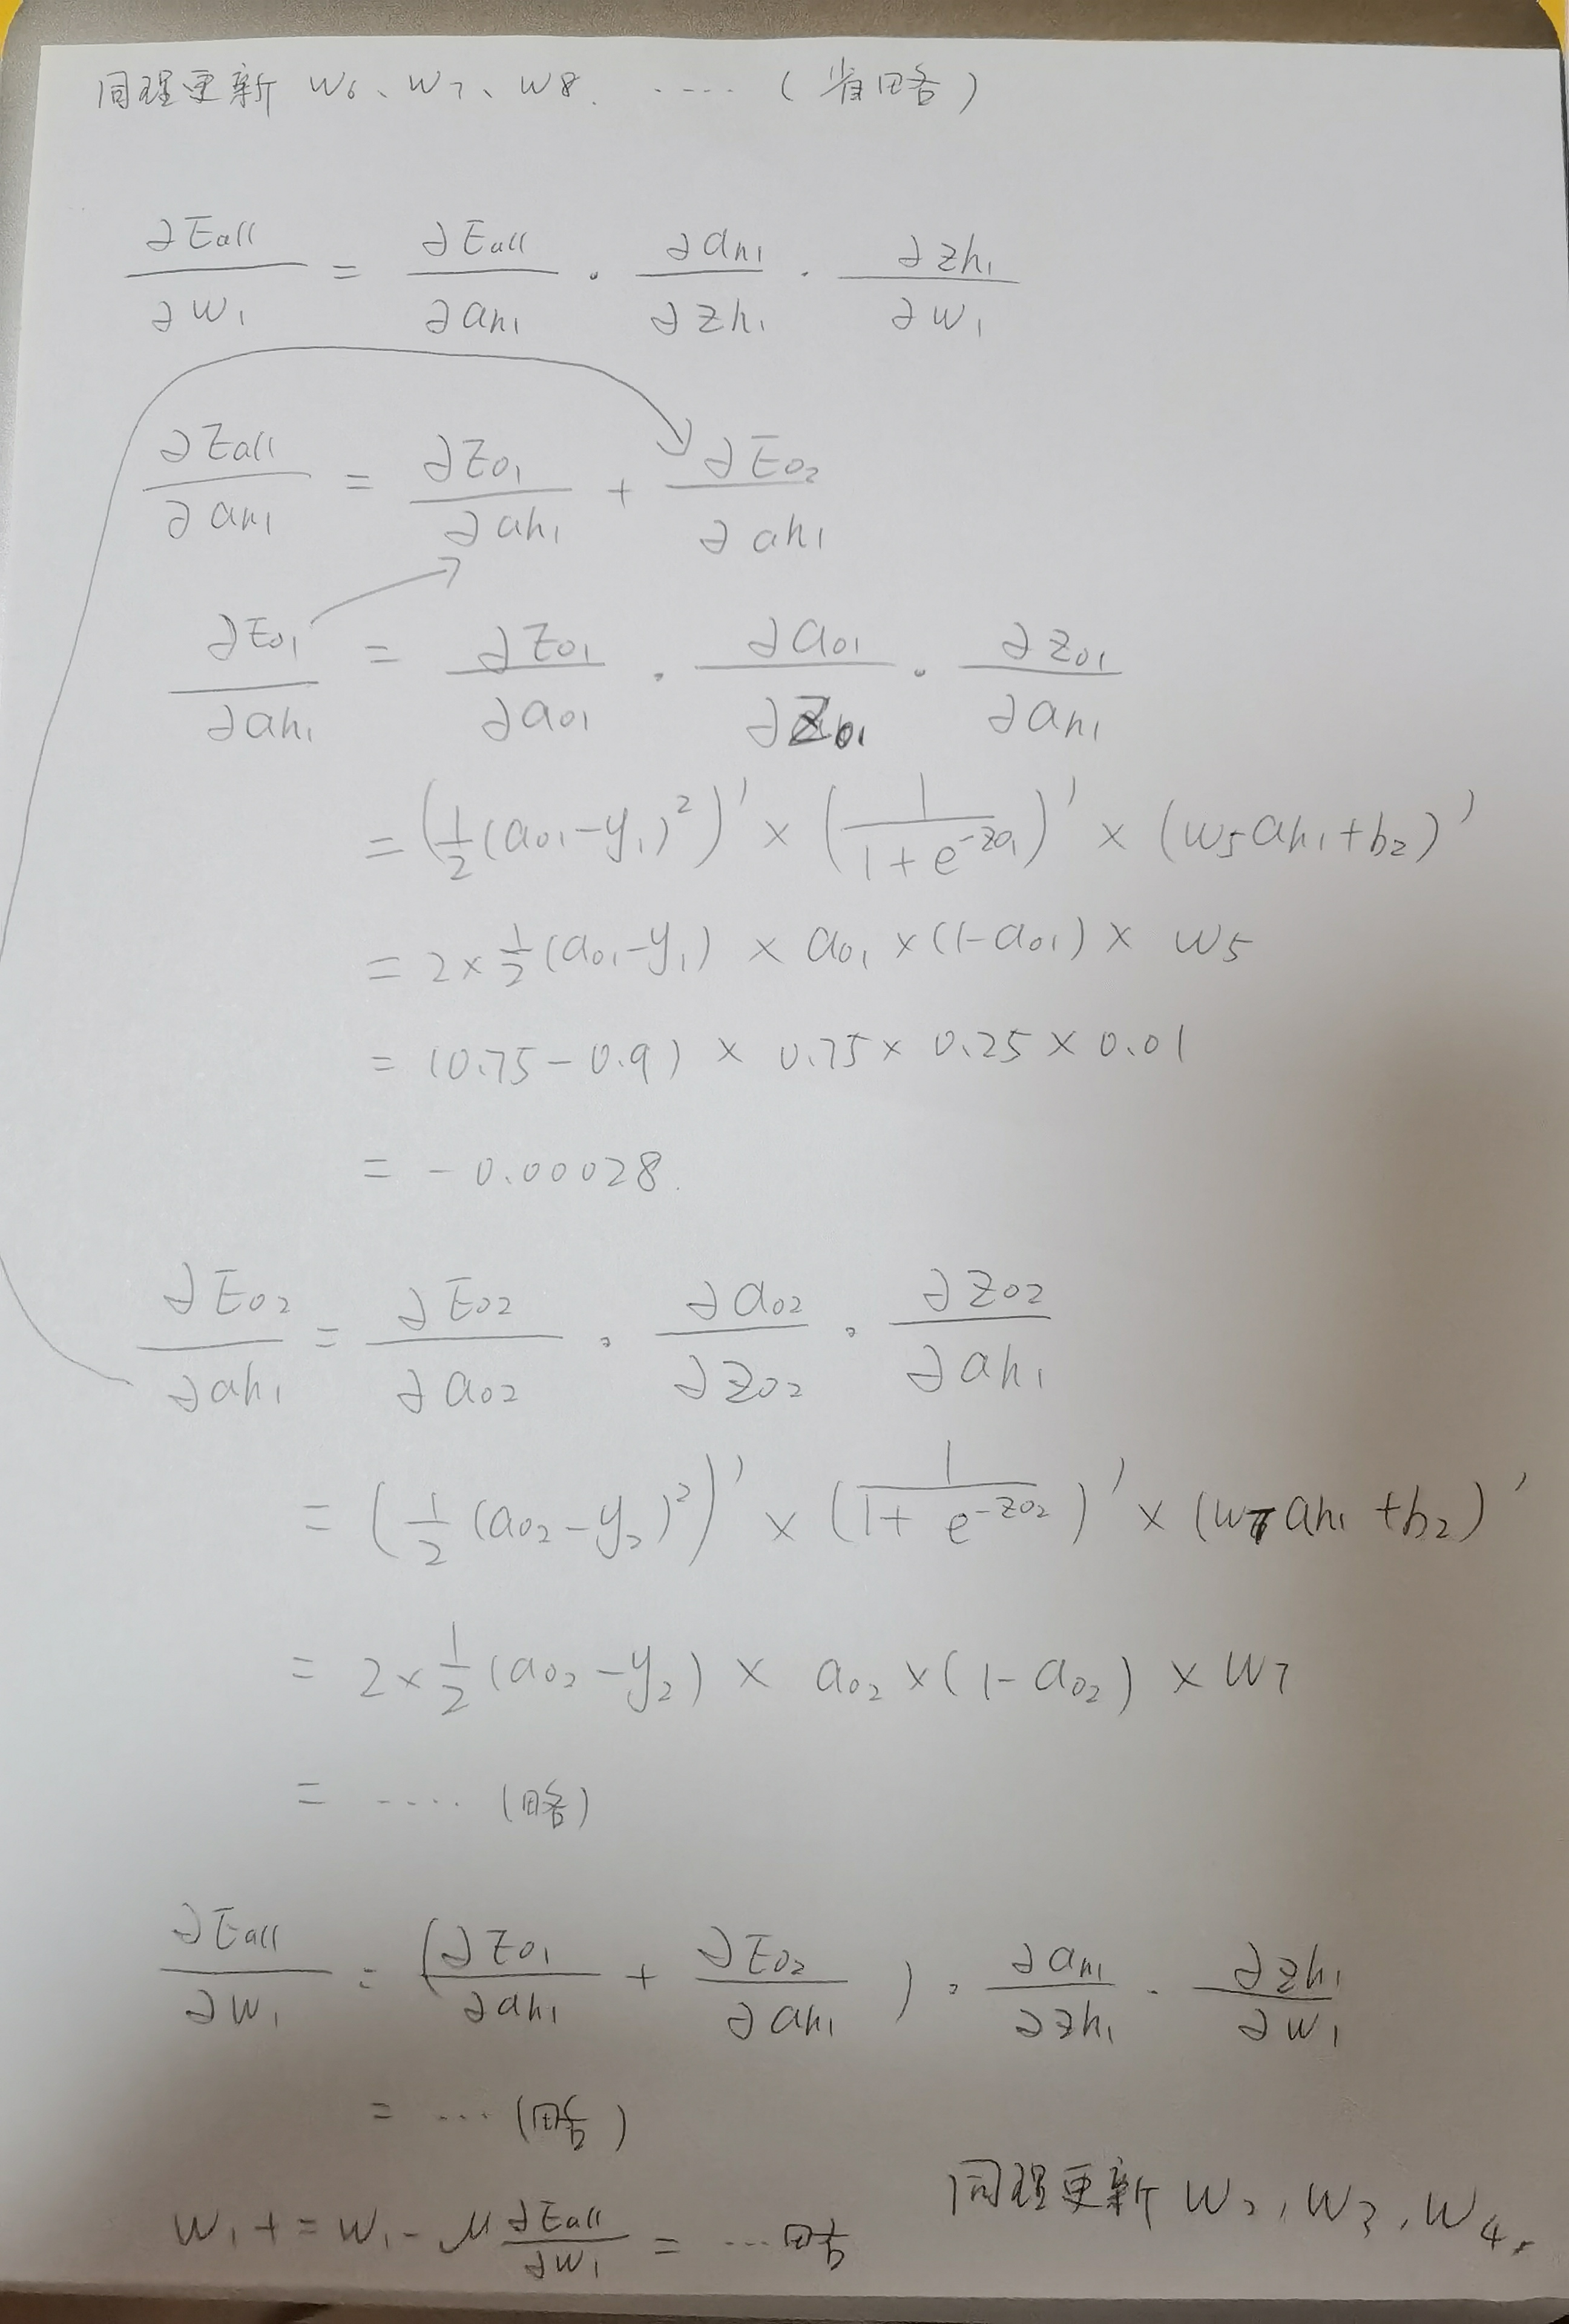 同理更新 w₆、w₇、w₈. ..... (省略)
∂Eall/∂w₁ = ∂Eall/∂ah₁ · ∂ah₁/∂zh₁ · ∂zh₁/∂w₁
∂Eall/∂ah₁ = ∂Eo₁/∂ah₁ + ∂Eo₂/∂ah₁
∂Eo₁/∂ah₁ = ∂Eo₁/∂ao₁ · ∂ao₁/∂zo₁ · ∂zo₁/∂ah₁
= (½(ao₁-y₁)²)' × (1/(1+e^(-zo₁)))' × (w₅ah₁+b₂)'
= 2×½(ao₁-y₁) × ao₁×(1-ao₁) × w₅
= (0.75-0.9) × 0.75 × 0.25 × 0.01
= -0.00028.
∂Eo₂/∂ah₁ = ∂Eo₂/∂ao₂ · ∂ao₂/∂zo₂ · ∂zo₂/∂ah₁
= (½(ao₂-y₂)²)' × (1/(1+e^(-zo₂)))' × (w₇ah₁+b₂)'
= 2×½(ao₂-y₂) × ao₂×(1-ao₂) × w₇
= .... (略)
∂Eall/∂w₁ = (∂Eo₁/∂ah₁ + ∂Eo₂/∂ah₁) · ∂ah₁/∂zh₁ · ∂zh₁/∂w₁
= ... (略)
w₁+ = w₁ - μ ∂Eall/∂w₁ = ...略
同理更新 w₂, w₃, w₄.